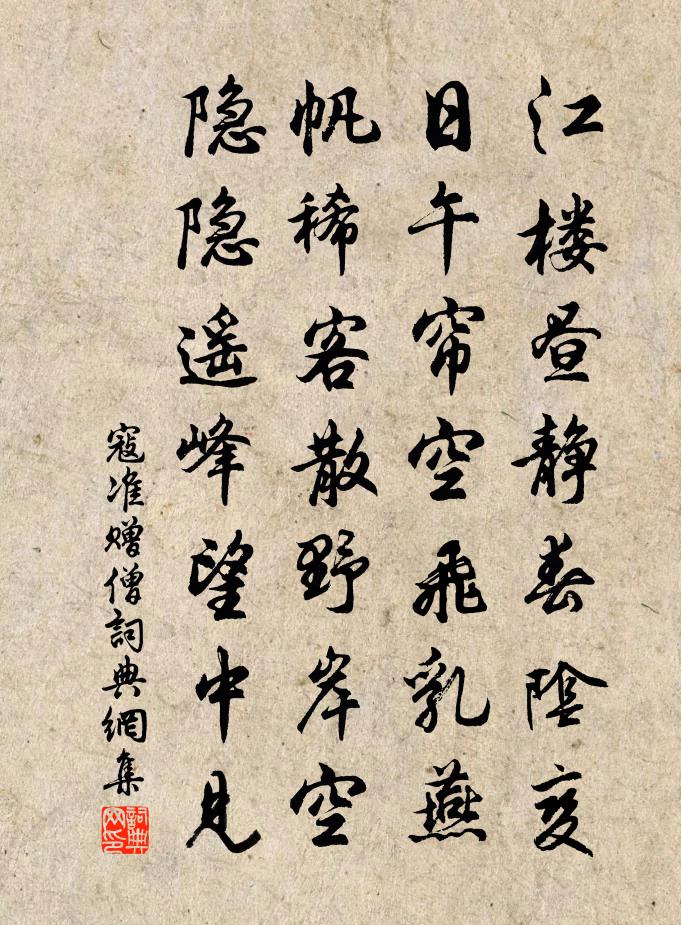 江楼昼静春阴变
日午帘空飛乳燕
帆稀客散野岸空
隐隐遥峰望中見
寇准赠僧詞典網集
詞典
网印